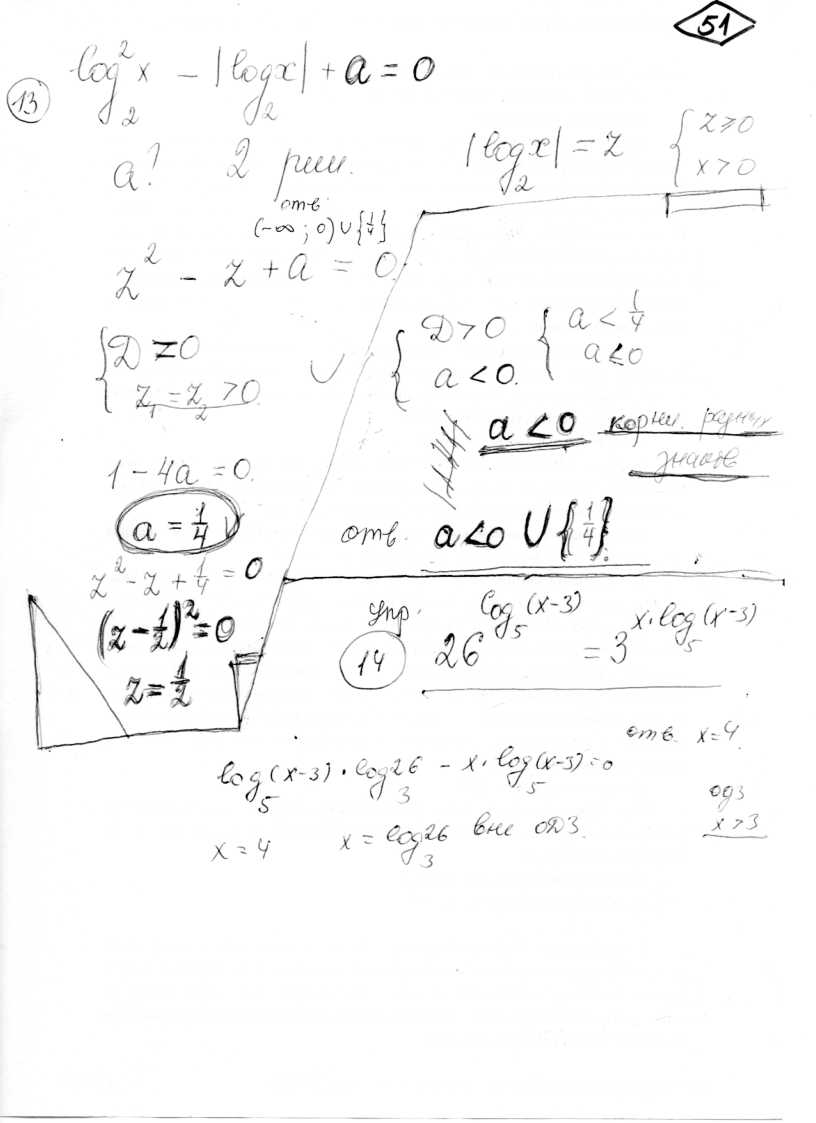 51
13 log₂²x − |log₂x| + a = 0
a? 2 реш.
|log₂x| = z { z ≥ 0
x > 0
отв.
(−∞; 0) ∪ {1/4}
z² − z + a = 0.
{ D = 0
z₁ = z₂ > 0.
∪ { D > 0
a < 0.
{ a < 1/4
a ≤ 0
a < 0 корни разных
знаков
1 − 4a = 0.
a = 1/4
отв. a < 0 ∪ {1/4}.
z² − z + 1/4 = 0
(z − 1/2)² = 0
z = 1/2
Упр.
14 26^(log₅(x−3)) = 3^(x·log₅(x−3))
отв. x = 4.
log₅(x−3) · log₃26 − x · log₅(x−3) = 0
одз
x > 3
x = 4 x = log₃26 вне ОДЗ.